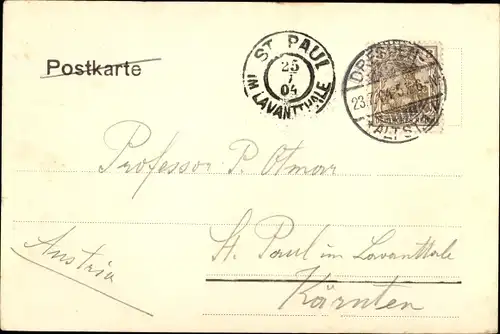 Postkarte
ST. PAUL
25
7
04
IM LAVANTTHALE
DRESDEN
23.7.04
ALTST.
Professor P. Otmar
Austria
St. Paul im Lavanttale
Kärnten